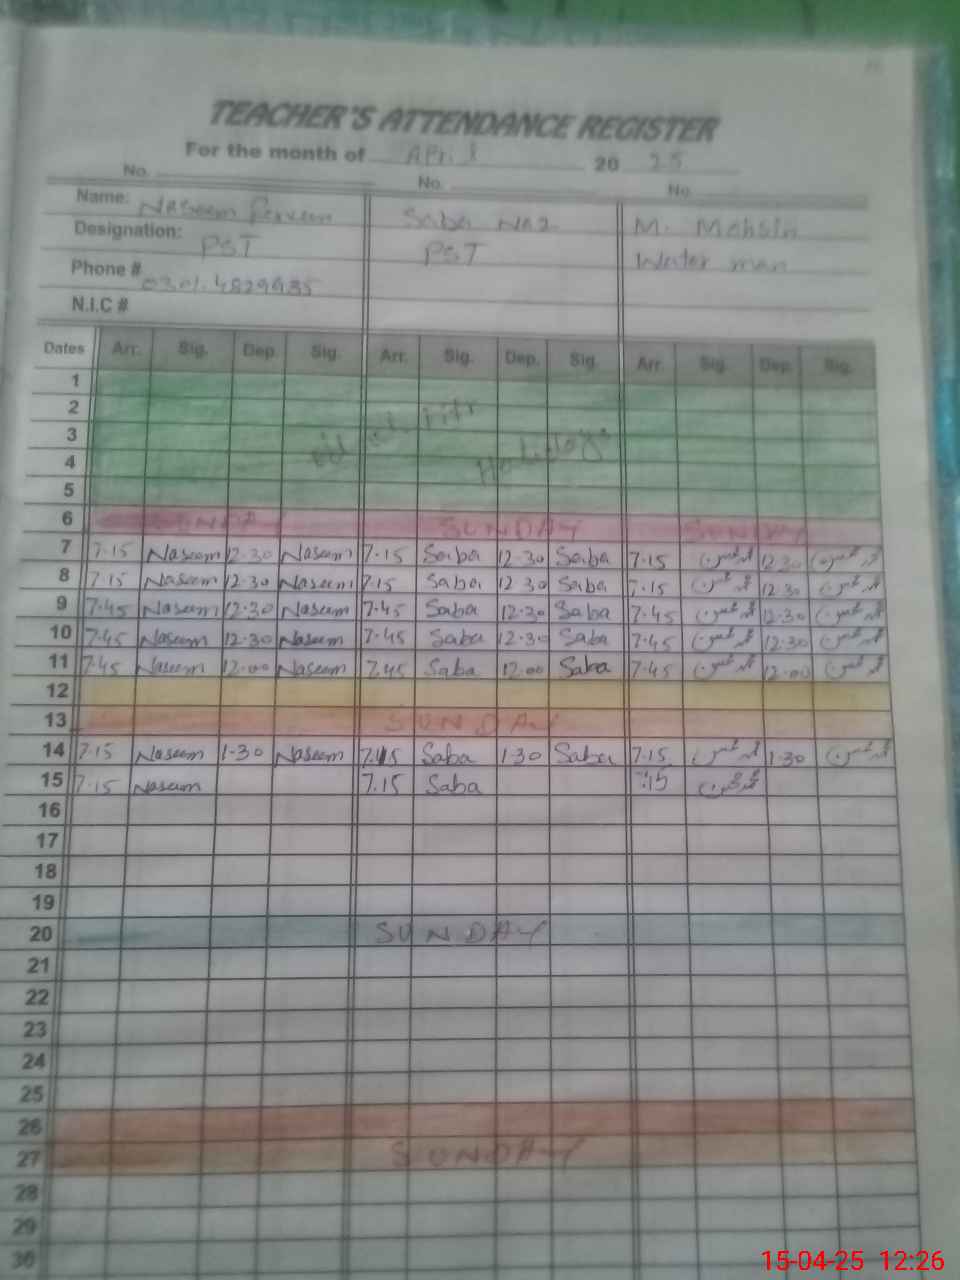 TEACHER'S ATTENDANCE REGISTER
For the month of April 20 25
No. No. No.
Name: Naseem Parveen Saba Naz M. Mohsin
Designation: PST PST Water man
Phone #
N.I.C #
Dates Arr. Sig. Dep. Sig. Arr. Sig. Dep. Sig. Arr. Sig. Dep. Sig.
1
2
3
4 Holidays
5
6 SUNDAY SUNDAY SUNDAY
7 7.15 Naseem 12.30 Naseem 7.15 Saba 12.30 Saba 7.15 محمد محسن 12.30 محمد محسن
8 7.15 Naseem 12.30 Naseem 7.15 Saba 12.30 Saba 7.15 محمد محسن 12.30 محمد محسن
9 7.45 Naseem 12.30 Naseem 7.45 Saba 12.30 Saba 7.45 محمد محسن 12.30 محمد محسن
10 7.45 Naseem 12.30 Naseem 7.45 Saba 12.30 Saba 7.45 محمد محسن 12.30 محمد محسن
11 7.45 Naseem 12.00 Naseem 7.45 Saba 12.00 Saba 7.45 محمد محسن 12.00 محمد محسن
12
13 SUNDAY
14 7.15 Naseem 1.30 Naseem Saba 1.30 Saba 7.15 محمد محسن 1.30 محمد محسن
15 7.15 Naseem 7.15 Saba 7.15 محمد محسن
16
17
18
19
20 SUNDAY
21
22
23
24
25
26
27 SUNDAY
28
29
30
15-04-25 12:26